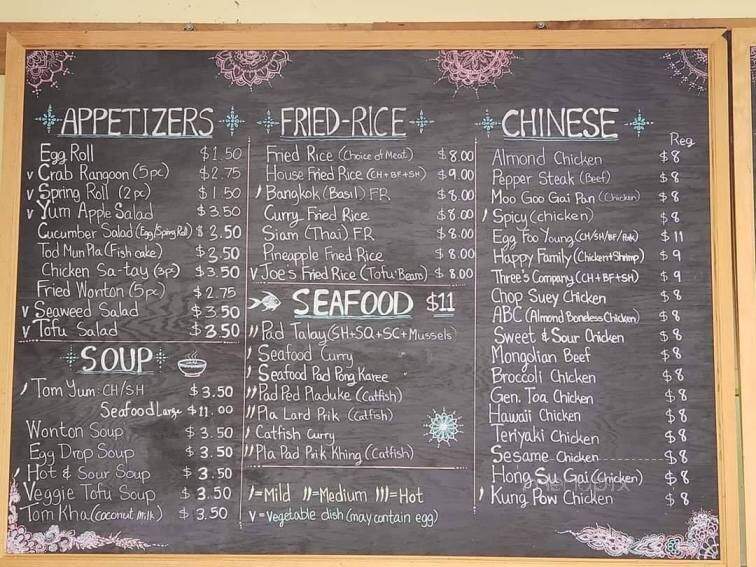 APPETIZERS
Egg Roll $1.50
v Crab Rangoon (5pc) $2.75
v Spring Roll (2 pc) $1.50
v Yum Apple Salad $3.50
Cucumber Salad (Egg/Spring Roll) $2.50
Tod Mun Pla (Fish cake) $2.50
Chicken Sa-tay (3pc) $3.50
Fried Wonton (5pc) $2.75
v Seaweed Salad $3.50
v Tofu Salad $3.50
SOUP
/ Tom Yum: CH/SH $3.50
Seafood Large $11.00
Wonton Soup $3.50
Egg Drop Soup $3.50
/ Hot & Sour Soup $3.50
Veggie Tofu Soup $3.50
Tom Kha (coconut milk) $3.50
FRIED-RICE
Fried Rice (Choice of Meat) $8.00
House Fried Rice (CH+BF+SH) $9.00
/ Bangkok (Basil) FR $8.00
Curry Fried Rice $8.00
Siam (Thai) FR $8.00
Pineapple Fried Rice $8.00
v Joe's Fried Rice (Tofu-Bean) $8.00
SEAFOOD $11
// Pad Talay (SH+SQ+SC+Mussels)
/ Seafood Curry
/ Seafood Pad Pong Karee
// Pad Ped Pladuke (Catfish)
// Pla Lard Prik (Catfish)
/ Catfish Curry
// Pla Pad Prik Khing (Catfish)
/=Mild //=Medium ///=Hot
v=vegetable dish (may contain egg)
CHINESE
Reg
Almond Chicken $8
Pepper Steak (Beef) $8
Moo Goo Gai Pan (Chicken) $8
/ Spicy (chicken) $8
Egg Foo Young (CH/SH/BF/Pork) $11
Happy Family (Chicken+Shrimp) $9
Three's Company (CH+BF+SH) $9
Chop Suey Chicken $8
ABC (Almond Boneless Chicken) $8
Sweet & Sour Chicken $8
Mongolian Beef $8
Broccoli Chicken $8
Gen. Toa Chicken $8
Hawaii Chicken $8
Teriyaki Chicken $8
Sesame Chicken $8
Hong Su Gai (Chicken) $8
/ Kung Pow Chicken $8